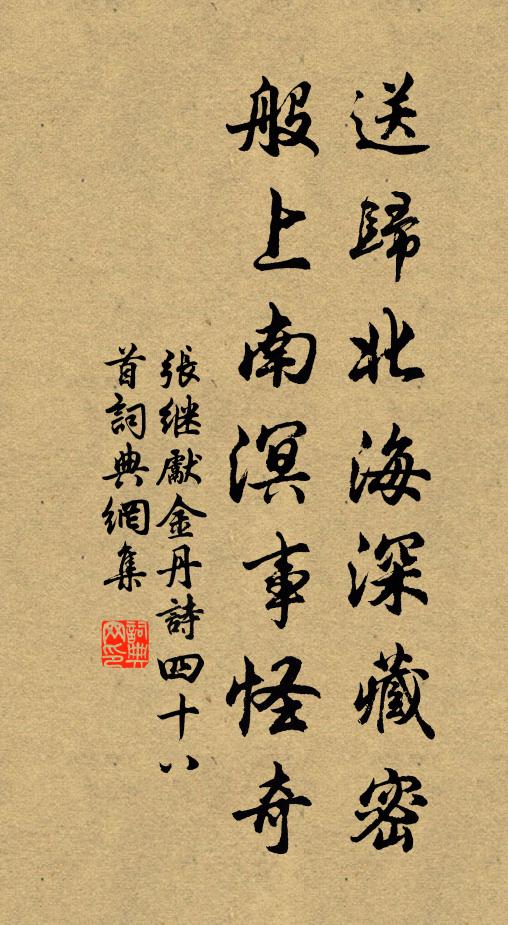 送歸北海深藏密
般上南溟事怪奇
張继獻金丹詩四十八
首詞典網集
詞典
网印